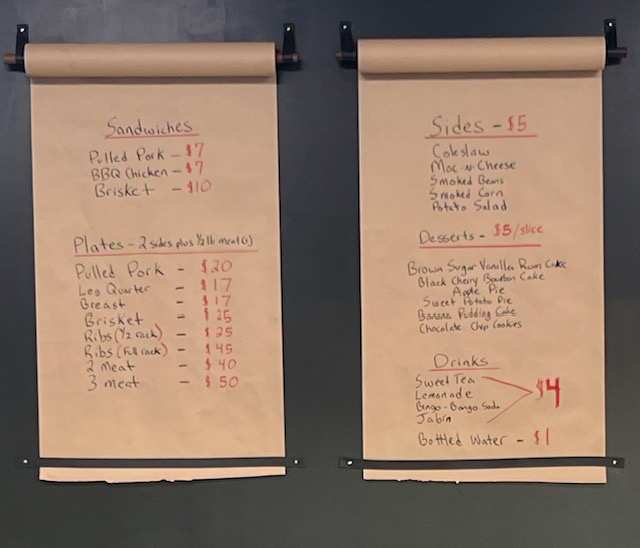 Sandwiches
Pulled Pork - $7
BBQ Chicken - $7
Brisket - $10
Plates - 2 sides plus 1/2 lb meat(s)
Pulled Pork - $20
Leg Quarter - $17
Breast - $17
Brisket - $25
Ribs (1/2 rack) - $25
Ribs (Full rack) - $45
2 Meat - $40
3 meat - $50
Sides - $5
Coleslaw
Mac-n-Cheese
Smoked Beans
Smoked Corn
Potato Salad
Desserts - $5/slice
Brown Sugar Vanilla Rum Cake
Black Cherry Bourbon Cake
Apple Pie
Sweet Potato Pie
Banana Pudding Cake
Chocolate Chip Cookies
Drinks
Sweet Tea
Lemonade
Bingo-Bongo Soda
$4
Bottled Water - $1